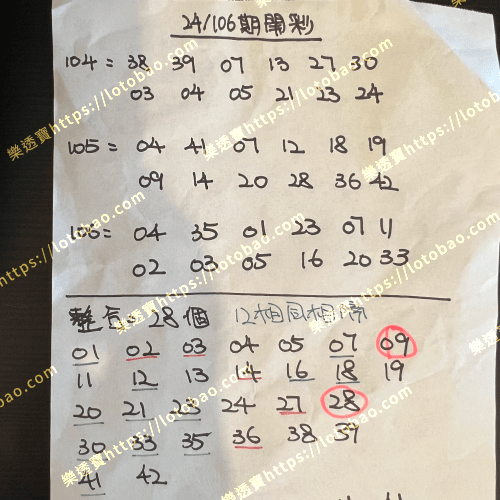 24/106期開彩
104 = 38 39 07 13 27 30
03 04 05 21 23 24
105 = 04 41 07 12 18 19
09 14 20 28 36 42
106 = 04 35 01 23 07 11
02 03 05 16 20 33
28個 12相同相隔
01 02 03 04 05 07 09
11 12 13 14 16 18 19
20 21 23 24 27 28
30 33 35 36 38 39
41 42
樂透寶https://lotobao.com